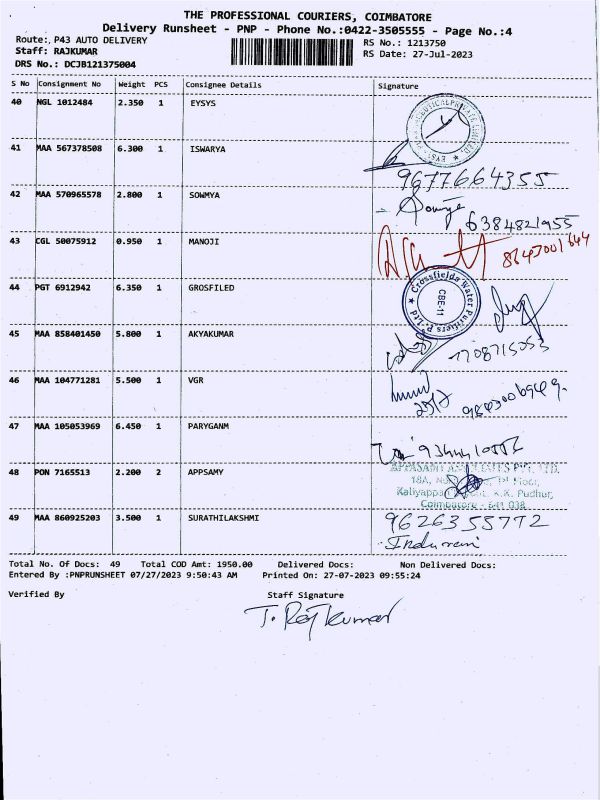 THE PROFESSIONAL COURIERS, COIMBATORE
Delivery Runsheet - PNP - Phone No.:0422-3505555 - Page No.:4
Route:, P43 AUTO DELIVERY
RS No.: 1213750
Staff: RAJKUMAR
RS Date: 27-Jul-2023
DRS No.: DCJB121375004
S No Consignment No Weight PCS Consignee Details Signature
40 NGL 1012484 2.350 1 EYSYS
41 MAA 567378508 6.300 1 ISWARYA
9677664355
42 MAA 570965578 2.800 1 SOWMYA
Sowmya
6384821955
43 CGL 50075912 0.950 1 MANOJI
44 PGT 6912942 6.350 1 GROSFILED
Crossfields Water Purifiers P. Ltd.
CBE-11
45 MAA 858401450 5.800 1 AKYAKUMAR
46 MAA 104771281 5.500 1 VGR
47 MAA 105053969 6.450 1 PARYGANM
48 PON 7165513 2.200 2 APPSAMY
APPASAMY ASSOCIATES PVT. LTD.
18A, Floor,
K.K. Pudhur,
Coimbatore - 641 038
49 MAA 860925203 3.500 1 SURATHILAKSHMI
9626355772
Indumani
Total No. Of Docs: 49 Total COD Amt: 1950.00 Delivered Docs: Non Delivered Docs:
Entered By :PNPRUNSHEET 07/27/2023 9:50:43 AM Printed On: 27-07-2023 09:55:24
Verified By Staff Signature
T. Rajkumar